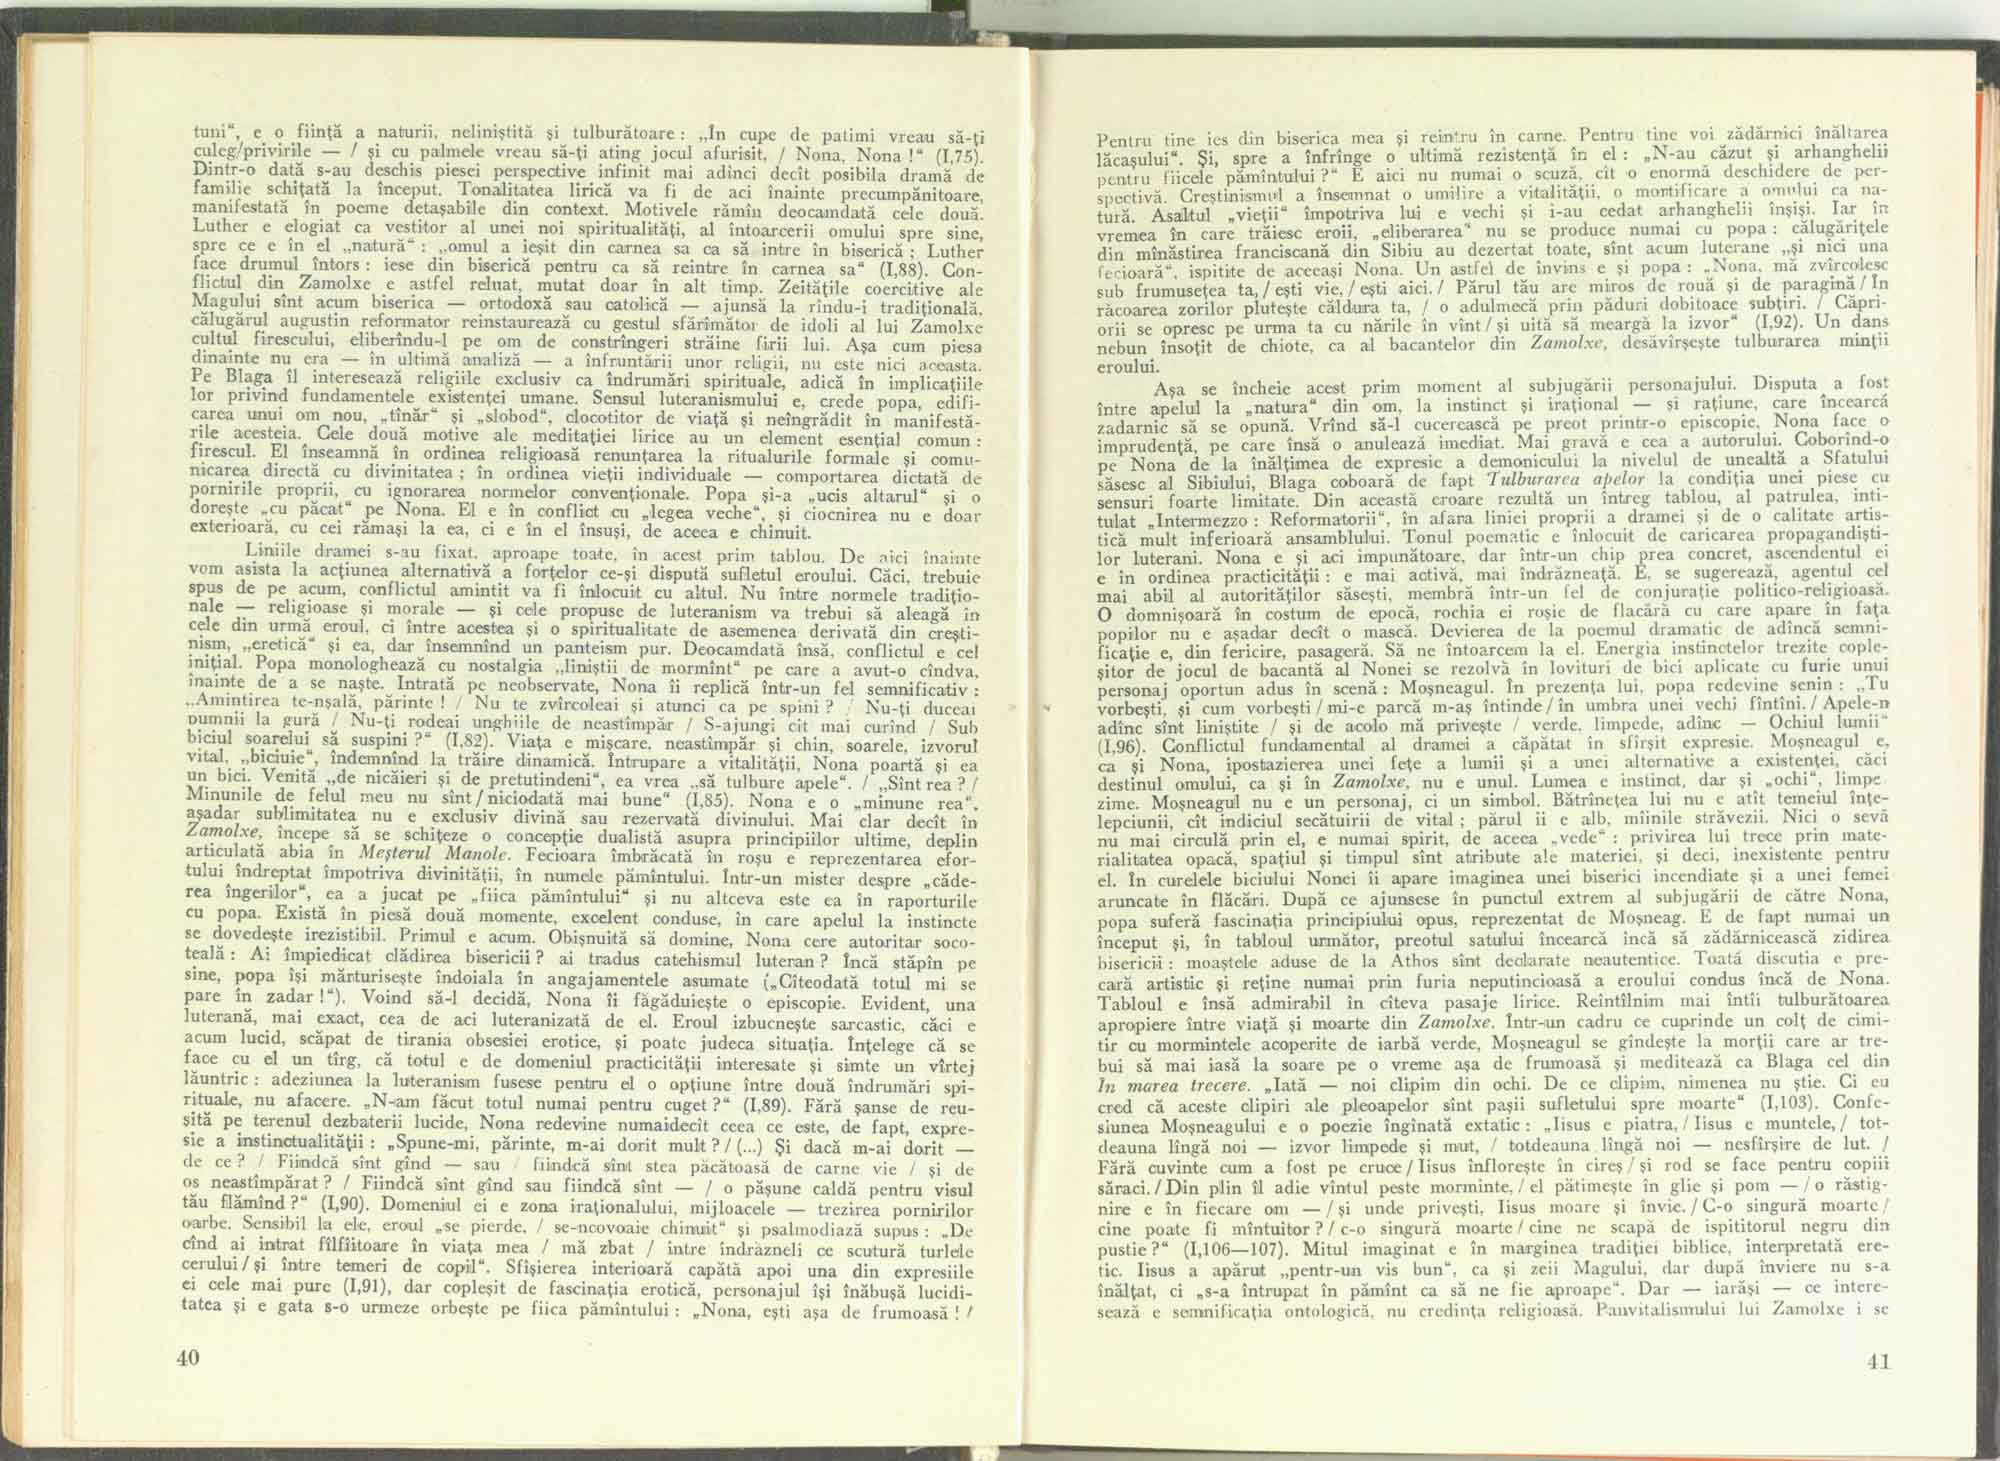 tuni“, e o ființă a naturii, neliniștită și tulburătoare : „In cupe de patimi vreau să-ți
culeg/privirile — / și cu palmele vreau să-ți ating jocul afurisit, / Nona, Nona !“ (I,75).
Dintr-o dată s-au deschis piesei perspective infinit mai adinci decît posibila dramă de
familie schițată la început. Tonalitatea lirică va fi de aci înainte precumpănitoare,
manifestată în poeme detașabile din context. Motivele rămîn deocamdată cele două.
Luther e elogiat ca vestitor al unei noi spiritualități, al întoarcerii omului spre sine,
spre ce e în el „natură“ : „omul a ieșit din carnea sa ca să intre în biserică ; Luther
face drumul întors : iese din biserică pentru ca să reintre în carnea sa“ (I,88). Con-
flictul din Zamolxe e astfel reluat, mutat doar în alt timp. Zeitățile coercitive ale
Magului sînt acum biserica — ortodoxă sau catolică — ajunsă la rîndu-i tradițională,
călugărul augustin reformator reinstaurează cu gestul sfărîmător de idoli al lui Zamolxe
cultul firescului, eliberîndu-l pe om de constrîngeri străine firii lui. Așa cum piesa
dinainte nu era — în ultimă analiză — a înfruntării unor religii, nu este nici aceasta.
Pe Blaga îl interesează religiile exclusiv ca îndrumări spirituale, adică în implicațiile
lor privind fundamentele existenței umane. Sensul luteranismului e, crede popa, edifi-
carea unui om nou, „tînăr“ și „slobod“, clocotitor de viață și neîngrădit în manifestă-
rile acesteia. Cele două motive ale meditației lirice au un element esențial comun :
firescul. El înseamnă în ordinea religioasă renunțarea la ritualurile formale și comu-
nicarea directă cu divinitatea ; în ordinea vieții individuale — comportarea dictată de
pornirile proprii, cu ignorarea normelor convenționale. Popa și-a „ucis altarul“ și o
dorește „cu păcat“ pe Nona. El e în conflict cu „legea veche“, și ciocnirea nu e doar
exterioară, cu cei rămași la ea, ci e în el însuși, de aceea e chinuit.
Liniile dramei s-au fixat, aproape toate, în acest prim tablou. De aici înainte
vom asista la acțiunea alternativă a forțelor ce-și dispută sufletul eroului. Căci, trebuie
spus de pe acum, conflictul amintit va fi înlocuit cu altul. Nu între normele tradițio-
nale — religioase și morale — și cele propuse de luteranism va trebui să aleagă în
cele din urmă eroul, ci între acestea și o spiritualitate de asemenea derivată din crești-
nism, „eretică“ și ea, dar însemnînd un panteism pur. Deocamdată însă, conflictul e cel
inițial. Popa monologhează cu nostalgia „liniștii de mormînt“ pe care a avut-o cîndva,
înainte de a se naște. Intrată pe neobservate, Nona îi replică într-un fel semnificativ :
„Amintirea te-nșală, părinte ! / Nu te zvîrcoleai și atunci ca pe spini ? / Nu-ți duceai
pumnii la gură / Nu-ți rodeai unghiile de neastîmpăr / S-ajungi cît mai curînd / Sub
biciul soarelui să suspini ?“ (I,82). Viața e mișcare, neastîmpăr și chin, soarele, izvorul
vital, „biciuie“, îndemnînd la trăire dinamică. Întrupare a vitalității, Nona poartă și ea
un bici. Venită „de nicăieri și de pretutindeni“, ea vrea „să tulbure apele“. / „Sînt rea ? /
Minunile de felul meu nu sînt / niciodată mai bune“ (I,85). Nona e o „minune rea“,
așadar sublimitatea nu e exclusiv divină sau rezervată divinului. Mai clar decît în
Zamolxe, începe să se schițeze o concepție dualistă asupra principiilor ultime, deplin
articulată abia în Meșterul Manole. Fecioara îmbrăcată în roșu e reprezentarea efor-
tului îndreptat împotriva divinității, în numele pămîntului. Intr-un mister despre „căde-
rea îngerilor“, ea a jucat pe „fiica pămîntului“ și nu altceva este ea în raporturile
cu popa. Există în piesă două momente, excelent conduse, în care apelul la instincte
se dovedește irezistibil. Primul e acum. Obișnuită să domine, Nona cere autoritar soco-
teală : Ai împiedicat clădirea bisericii ? ai tradus catehismul luteran ? Încă stăpîn pe
sine, popa își mărturisește îndoiala în angajamentele asumate („Cîteodată totul mi se
pare în zadar !“). Voind să-l decidă, Nona îi făgăduiește o episcopie. Evident, una
luterană, mai exact, cea de aci luteranizată de el. Eroul izbucnește sarcastic, căci e
acum lucid, scăpat de tirania obsesiei erotice, și poate judeca situația. Înțelege că se
face cu el un tîrg, că totul e de domeniul practicității interesate și simte un vîrtej
lăuntric : adeziunea la luteranism fusese pentru el o opțiune între două îndrumări spi-
rituale, nu afacere. „N-am făcut totul numai pentru cuget ?“ (I,89). Fără șanse de reu-
șită pe terenul dezbaterii lucide, Nona redevine numaidecît ceea ce este, de fapt, expre-
sie a instinctualității : „Spune-mi, părinte, m-ai dorit mult ? / (...) Și dacă m-ai dorit —
de ce ? / Fiindcă sînt gînd — sau / fiindcă sînt stea păcătoasă de carne vie / și de
os neastîmpărat ? / Fiindcă sînt gînd sau fiindcă sînt — / o pășune caldă pentru visul
tău flămînd ?“ (I,90). Domeniul ei e zona iraționalului, mijloacele — trezirea pornirilor
oarbe. Sensibil la ele, eroul „se pierde, / se-ncovoaie chinuit“ și psalmodiază supus : „De
cînd ai intrat fîlfîitoare în viața mea / mă zbat / între îndrăzneli ce scutură turlele
cerului / și între temeri de copil“. Sfîșierea interioară capătă apoi una din expresiile
ei cele mai pure (I,91), dar copleșit de fascinația erotică, personajul își înăbușă lucidi-
tatea și e gata s-o urmeze orbește pe fiica pămîntului : „Nona, ești așa de frumoasă ! /
40
Pentru tine ies din biserica mea și reintru în carne. Pentru tine voi zădărnici înălțarea
lăcașului“. Și, spre a înfrînge o ultimă rezistență în el : „N-au căzut și arhanghelii
pentru fiicele pămîntului ?“ E aici nu numai o scuză, cît o enormă deschidere de per-
spectivă. Creștinismul a însemnat o umilire a vitalității, o mortificare a omului ca na-
tură. Asaltul „vieții“ împotriva lui e vechi și i-au cedat arhanghelii înșiși. Iar în
vremea în care trăiesc eroii, „eliberarea“ nu se produce numai cu popa : călugărițele
din mînăstirea franciscană din Sibiu au dezertat toate, sînt acum luterane „și nici una
fecioară“, ispitite de aceeași Nona. Un astfel de învins e și popa : „Nona, mă zvîrcolesc
sub frumusețea ta, / ești vie, / ești aici. / Părul tău are miros de rouă și de paragină / În
răcoarea zorilor plutește căldura ta, / o adulmecă prin păduri dobitoace subțiri. / Căpri-
orii se opresc pe urma ta cu nările în vînt / și uită să meargă la izvor“ (I,92). Un dans
nebun însoțit de chiote, ca al bacantelor din Zamolxe, desăvîrșește tulburarea minții
eroului.
Așa se încheie acest prim moment al subjugării personajului. Disputa a fost
între apelul la „natura“ din om, la instinct și irațional — și rațiune, care încearcă
zadarnic să se opună. Vrînd să-l cucerească pe preot printr-o episcopie, Nona face o
imprudență, pe care însă o anulează imediat. Mai gravă e cea a autorului. Coborînd-o
pe Nona de la înălțimea de expresie a demonicului la nivelul de unealtă a Sfatului
săsesc al Sibiului, Blaga coboară de fapt Tulburarea apelor la condiția unei piese cu
sensuri foarte limitate. Din această eroare rezultă un întreg tablou, al patrulea, inti-
tulat „Intermezzo : Reformatorii“, în afara liniei proprii a dramei și de o calitate artis-
tică mult inferioară ansamblului. Tonul poematic e înlocuit de caricarea propagandiști-
lor luterani. Nona e și aci impunătoare, dar într-un chip prea concret, ascendentul ei
e în ordinea practicității : e mai activă, mai îndrăzneață. E, se sugerează, agentul cel
mai abil al autorităților săsești, membră într-un fel de conjurație politico-religioasă.
O domnișoară în costum de epocă, rochia ei roșie de flacără cu care apare în fața
popilor nu e așadar decît o mască. Devierea de la poemul dramatic de adîncă semni-
ficație e, din fericire, pasageră. Să ne întoarcem la el. Energia instinctelor trezite cople-
șitor de jocul de bacantă al Nonei se rezolvă în lovituri de bici aplicate cu furie unui
personaj oportun adus în scenă : Moșneagul. În prezența lui, popa redevine senin : „Tu
vorbești, și cum vorbești / mi-e parcă m-aș întinde / în umbra unei vechi fîntîni. / Apele-n
adînc sînt liniștite / și de acolo mă privește / verde, limpede, adînc — Ochiul lumii“
(I,96). Conflictul fundamental al dramei a căpătat în sfîrșit expresie. Moșneagul e,
ca și Nona, ipostazierea unei fețe a lumii și a unei alternative a existenței, căci
destinul omului, ca și în Zamolxe, nu e unul. Lumea e instinct, dar și „ochi“, limpe
zime. Moșneagul nu e un personaj, ci un simbol. Bătrînețea lui nu e atît temeiul înțe-
lepciunii, cît indiciul secătuirii de vital ; părul îi e alb, mîinile străvezii. Nici o sevă
nu mai circulă prin el, e numai spirit, de aceea „vede“ : privirea lui trece prin mate-
rialitatea opacă, spațiul și timpul sînt atribute ale materiei, și deci, inexistente pentru
el. În curelele biciului Nonei îi apare imaginea unei biserici incendiate și a unei femei
aruncate în flăcări. După ce ajunsese în punctul extrem al subjugării de către Nona,
popa suferă fascinația principiului opus, reprezentat de Moșneag. E de fapt numai un
început și, în tabloul următor, preotul satului încearcă încă să zădărnicească zidirea
bisericii : moaștele aduse de la Athos sînt declarate neautentice. Toată discuția e pre-
cară artistic și reține numai prin furia neputincioasă a eroului condus încă de Nona.
Tabloul e însă admirabil în cîteva pasaje lirice. Reîntîlnim mai întîi tulburătoarea
apropiere între viață și moarte din Zamolxe. Într-un cadru ce cuprinde un colț de cimi-
tir cu mormintele acoperite de iarbă verde, Moșneagul se gîndește la morții care ar tre-
bui să mai iasă la soare pe o vreme așa de frumoasă și meditează ca Blaga cel din
În marea trecere. „Iată — noi clipim din ochi. De ce clipim, nimenea nu știe. Ci eu
cred că aceste clipiri ale pleoapelor sînt pașii sufletului spre moarte“ (I,103). Confe-
siunea Moșneagului e o poezie înginată extatic : „Iisus e piatra, / Iisus e muntele, / tot-
deauna lîngă noi — izvor limpede și mut, / totdeauna lîngă noi — nesfîrșire de lut. /
Fără cuvinte cum a fost pe cruce / Iisus înflorește în cireș / și rod se face pentru copiii
săraci. / Din plin îl adie vîntul peste morminte, / el pătimește în glie și pom — / o răstig-
nire e în fiecare om — / și unde privești, Iisus moare și învie. / C-o singură moarte /
cine poate fi mîntuitor ? / c-o singură moarte / cine ne scapă de ispititorul negru din
pustie ?“ (I,106—107). Mitul imaginat e în marginea tradiției biblice, interpretată ere-
tic. Iisus a apărut „pentr-un vis bun“, ca și zeii Magului, dar după înviere nu s-a
înălțat, ci „s-a întrupat în pămînt ca să ne fie aproape“. Dar — iarăși — ce intere-
sează e semnificația ontologică, nu credința religioasă. Panvitalismului lui Zamolxe i se
41